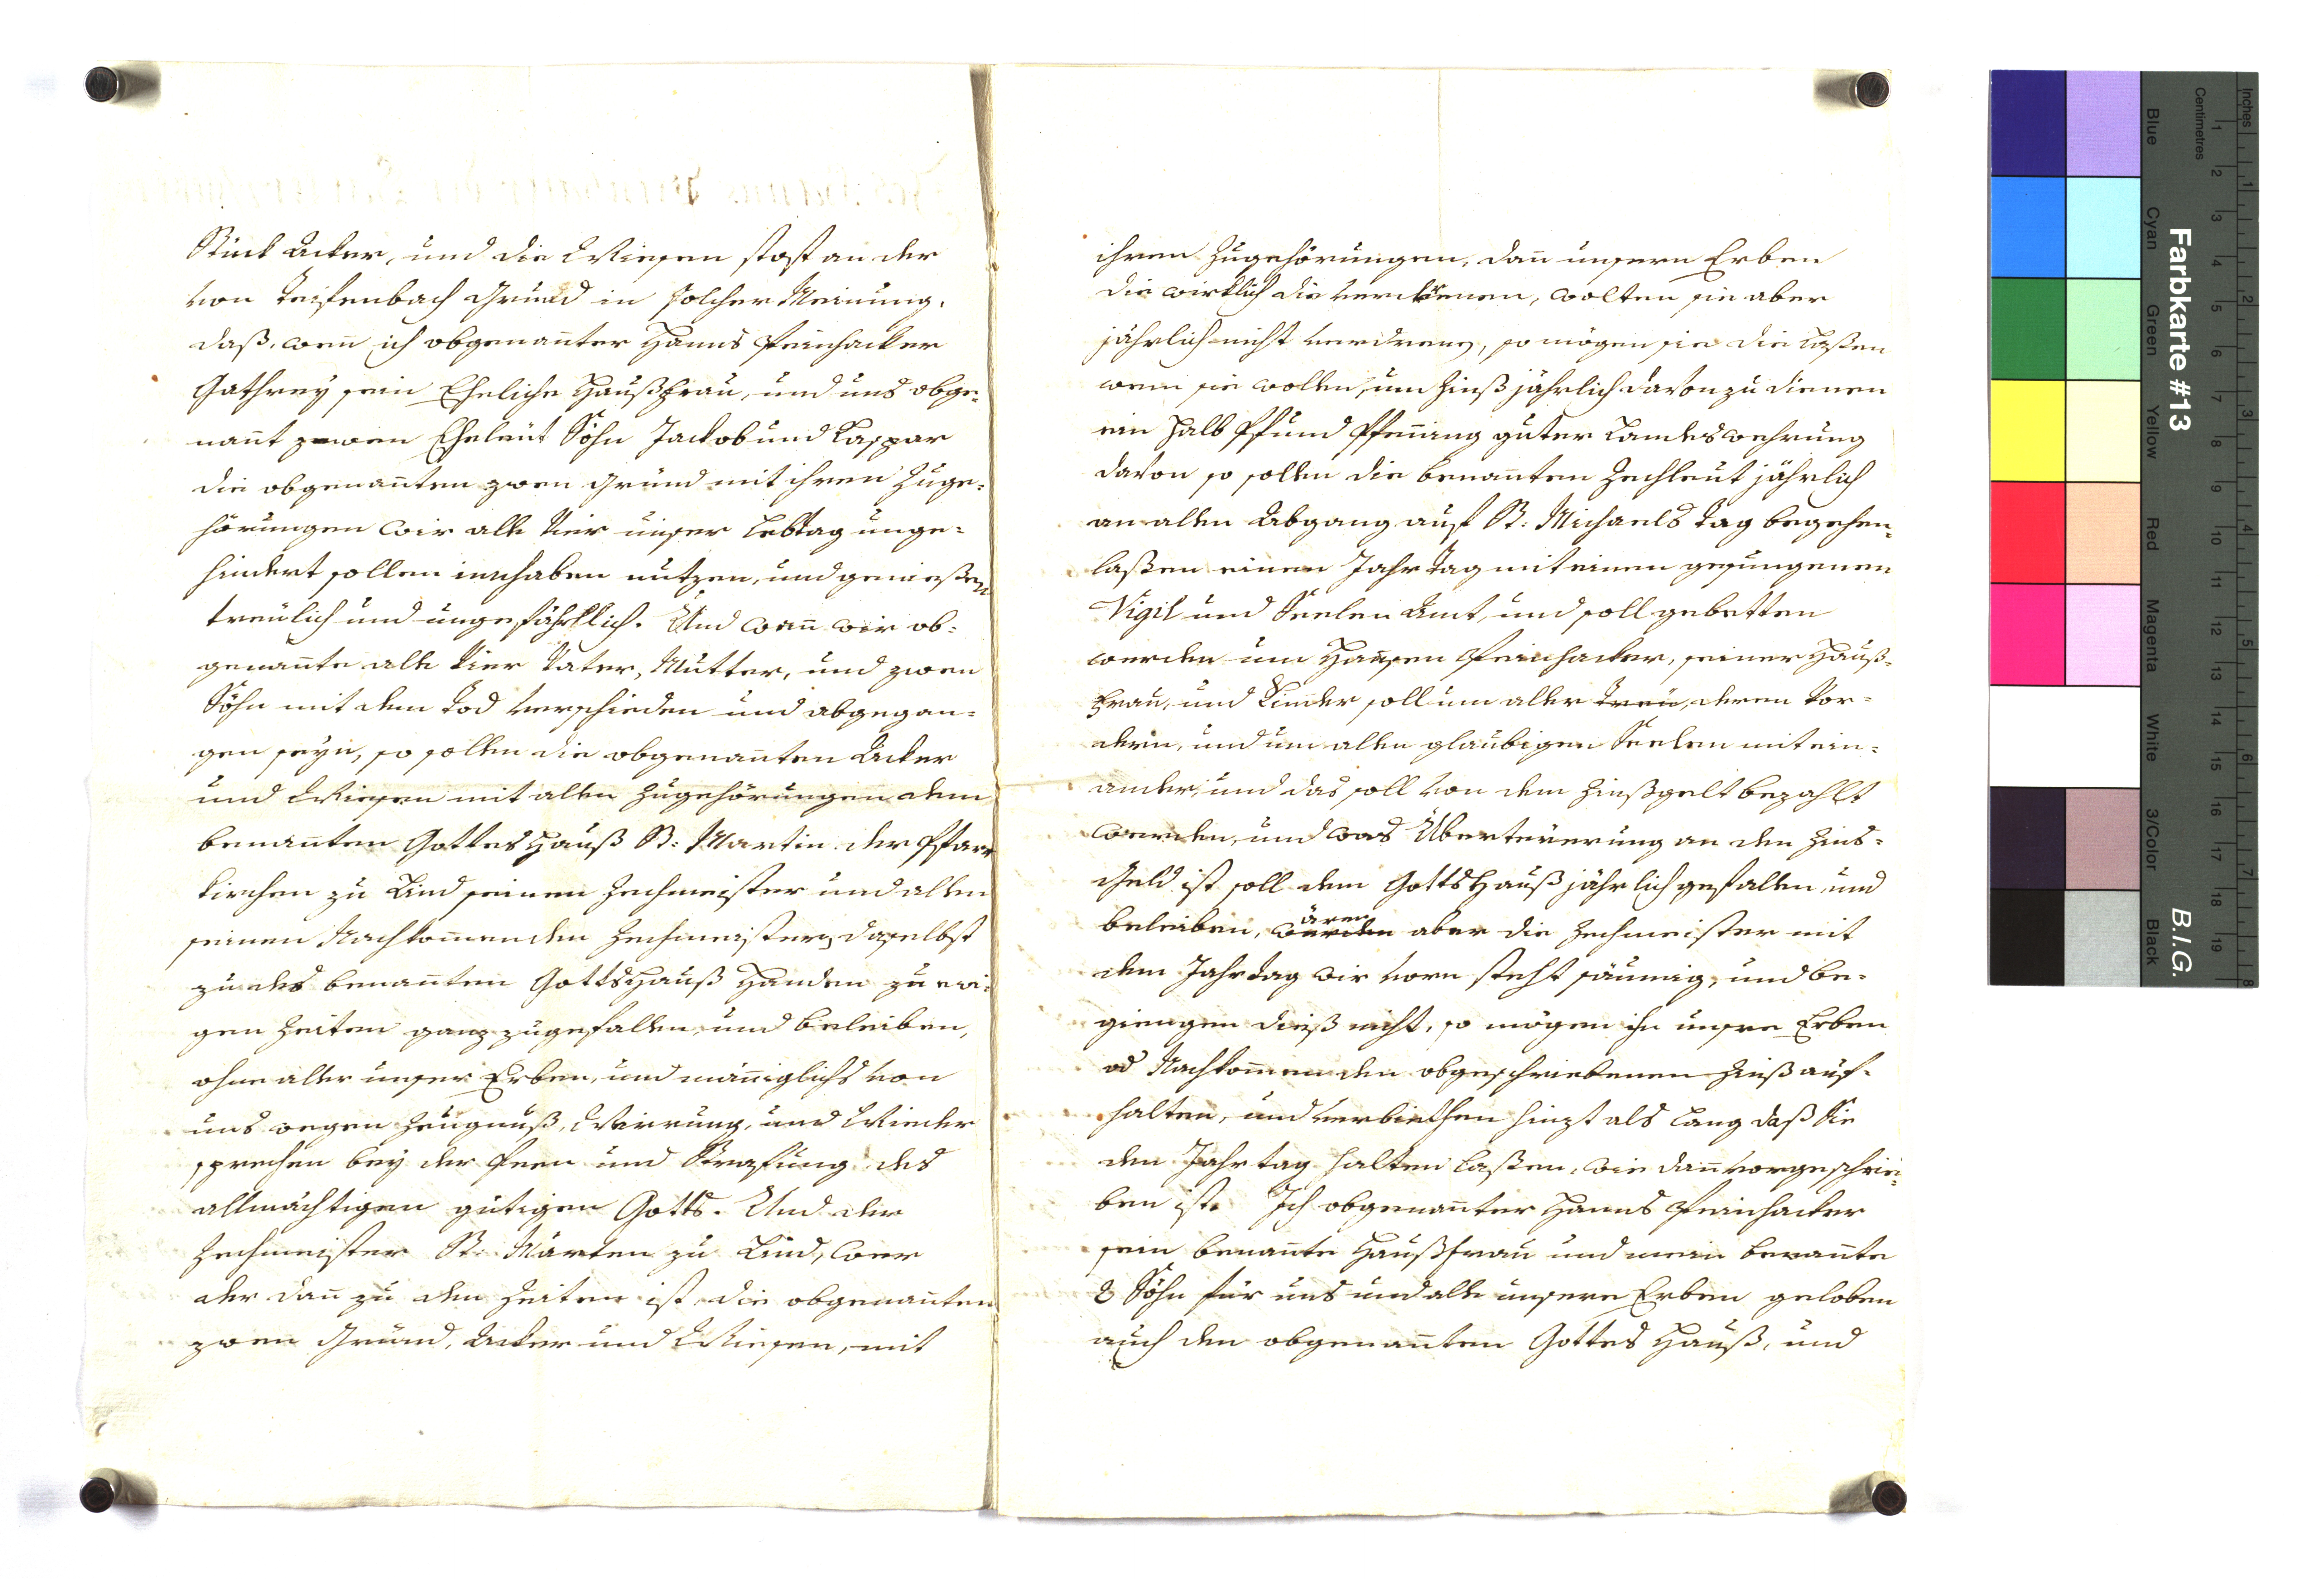 Stuck Acker, und die Wiesen stost an der
von Teissenbach Grund in solcher Meinung,
daß, wenn ich obgenannter Hanns Peinhacker
Cathrey sein Eheliche Haußfrau, und uns obge-
nannt zween Eheleut Söhn Jackob und Caspar
die obgenannten zween Gründ mit ihren Zuge-
hörungen wir alle vier unser Lebtag unge-
hindert sollen innhaben nutzen, und genießen
treülich und ungefährlich. Und wann wir ob-
genannte alle vier Vater, Mutter, und zween
Söhn mit dem Tod verschieden und abgegan-
gen seyn, so sollen die obgenannten Acker
und Wiesen mit allen Zugehörungen dem
benannten Gottes Hauß St: Martin der Pfarr
Kirchen zu Lind seinen Zechmeister und allen
seinen Nachkommenden Zechmeistern daselbst
zu des benannten Gottshauß Handen zu ewi-
gen Zeiten ganz zugefallen, und beleiben,
ohne aller unser Erben, und männiglichs von
uns wegen Zeugnuß, Wirrung, und Wieder
sprechen bey der Peen und Strafung des
allmächtigen gütigen Gotts. Und der
Zechmeister St: Märten zu Lind, wer
der dann zu den Zeiten ist, die obgenannten
zween Gründ, Acker und Wiesen, mit
ihren Zugehörungen, dann unsern Erben
die wirklich die verdienen, wolten sie aber
jährlich nicht verdienen, so mögen sie die laßen
wem sie wollen, um Zinß jährlich davon zu dienen
ein halb Pfund Pfenning guter Landeswehrung
davon so sollen die benannten Zechleut jährlich
an allen Abgang auf St: Michaels Tag begehen
laßen einen Jahr Tag mit einen gesungenen
Vigil und Seelen Amt, und soll gebetten
werden um Hansen Peinhacker, seiner Hauß-
frau, und Kinder soll um aller treu, deren Vor-
dern, und um allen glaubigen Seelen mitein-
ander, und das soll von dem Zinßgelt bezahlt
werden, und was Überteuerung an den Zins-
Geld ist soll dem Gottshauß jährlich gefallen und
beleiben, werden ären aber die Zechmeister mit
dem Jahrtag wir vorn steht säumig, und be-
giengen dieß nicht, so mögen ihn unsre Erben
od Nachkommen den obgeschriebenen Zinß auf-
halten, und verbiethen hinzt als lang daß Sie
den Jahrtag halten laßen, wie dann vorgeschrie-
ben ist. Ich obgenannter Hanns Peinhacker
sein benannte Haußfrau und mein benannte
2 Söhn für uns und alle unsere Erben geloben
auch den obgenannten Gottes Hauß, und
Farbkarte #13
B.I.G.
Inches
Centimetres
Blue
Cyan
Green
Yellow
Red
Magenta
White
3/Color
Black